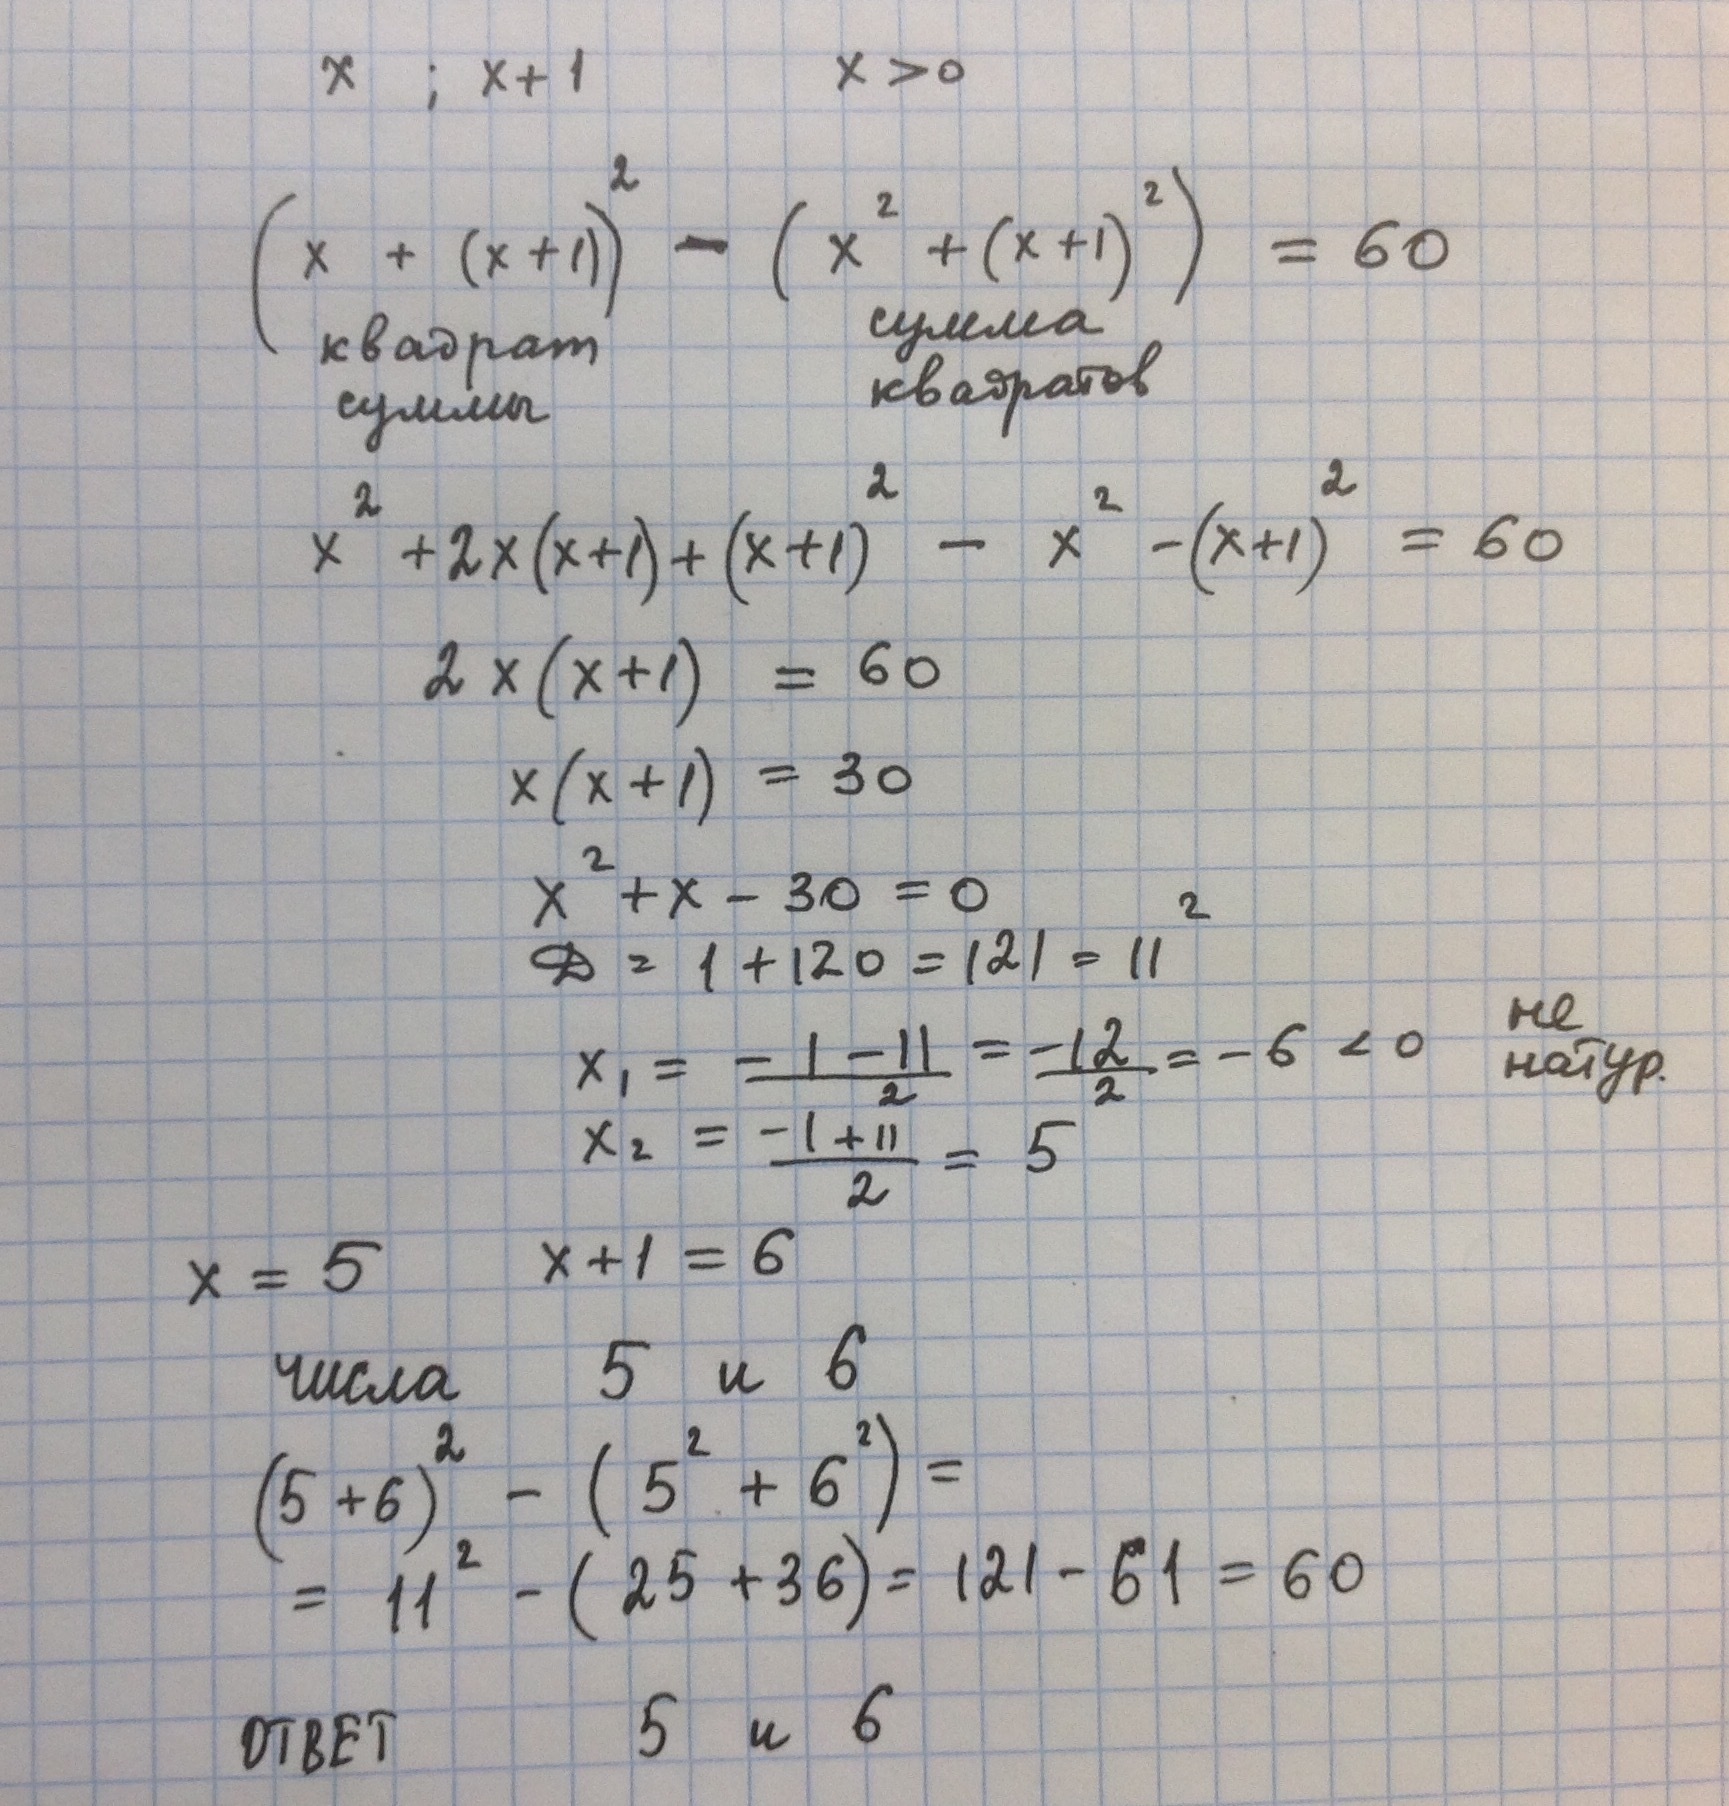 x ; x+1 x>0
(x + (x+1))² - (x² + (x+1)²) = 60
квадрат суммы
сумма квадратов
x² + 2x(x+1) + (x+1)² - x² - (x+1)² = 60
2x(x+1) = 60
x(x+1) = 30
x² + x - 30 = 0
D = 1 + 120 = 121 = 11²
x₁ = (-1-11)/2 = -12/2 = -6 < 0 не натур.
x₂ = (-1+11)/2 = 5
x = 5 x+1 = 6
числа 5 и 6
(5+6)² - (5² + 6²) =
= 11² - (25 + 36) = 121 - 61 = 60
ОТВЕТ 5 и 6